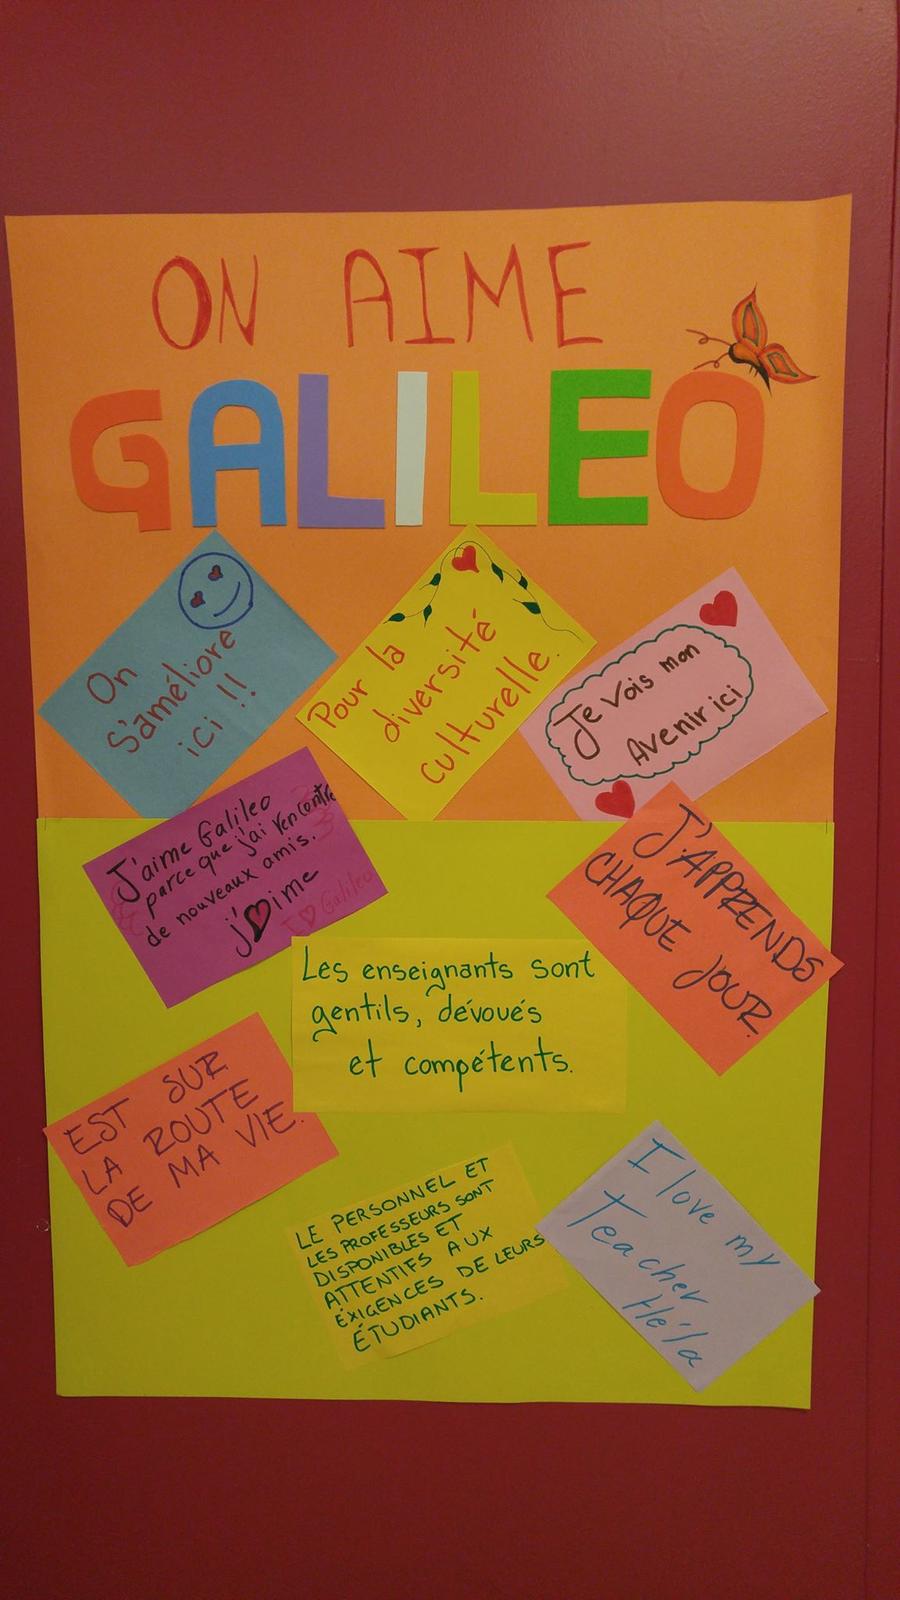 ON AIME
GALILEO
On
s'améliore
ici !!
Pour la
diversité
culturelle.
Je vois mon
Avenir ici
J'aime Galileo
parce que j'ai rencontré
de nouveaux amis.
j'aime
I Galileo
J'APPRENDS
CHAQUE JOUR.
Les enseignants sont
gentils, dévoués
et compétents.
EST SUR
LA ROUTE
DE MA VIE.
LE PERSONNEL ET
LES PROFESSEURS SONT
DISPONIBLES ET
ATTENTIFS AUX
ÉXIGENCES DE LEURS
ÉTUDIANTS.
I love my
Teacher
Hé'la